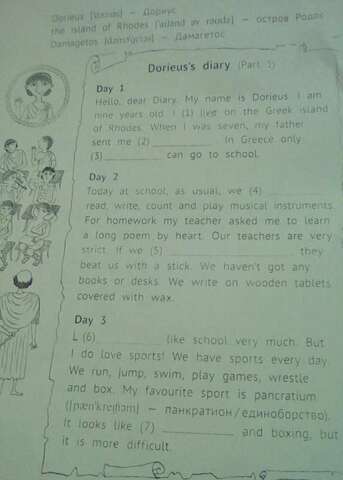 Dorieus [ ] – Дориус
the island of Rhodes ['aılənd əv rəʊdz] – остров Родос
Damagetos [ ] – Дамагетос
Dorieus's diary (Part 1)
Day 1
Hello, dear Diary. My name is Dorieus. I am
nine years old. I (1) live on the Greek island
of Rhodes. When I was seven, my father
sent me (2) __________ In Greece only
(3) __________ can go to school.
Day 2
Today at school, as usual, we (4) __________
read, write, count and play musical instruments.
For homework my teacher asked me to learn
a long poem by heart. Our teachers are very
strict. If we (5) __________ they
beat us with a stick. We haven't got any
books or desks. We write on wooden tablets
covered with wax.
Day 3
I (6) __________ like school very much. But
I do love sports! We have sports every day.
We run, jump, swim, play games, wrestle
and box. My favourite sport is pancratium
([pæn'kreıʃıəm] – панкратион/единоборство).
It looks like (7) __________ and boxing, but
it is more difficult.